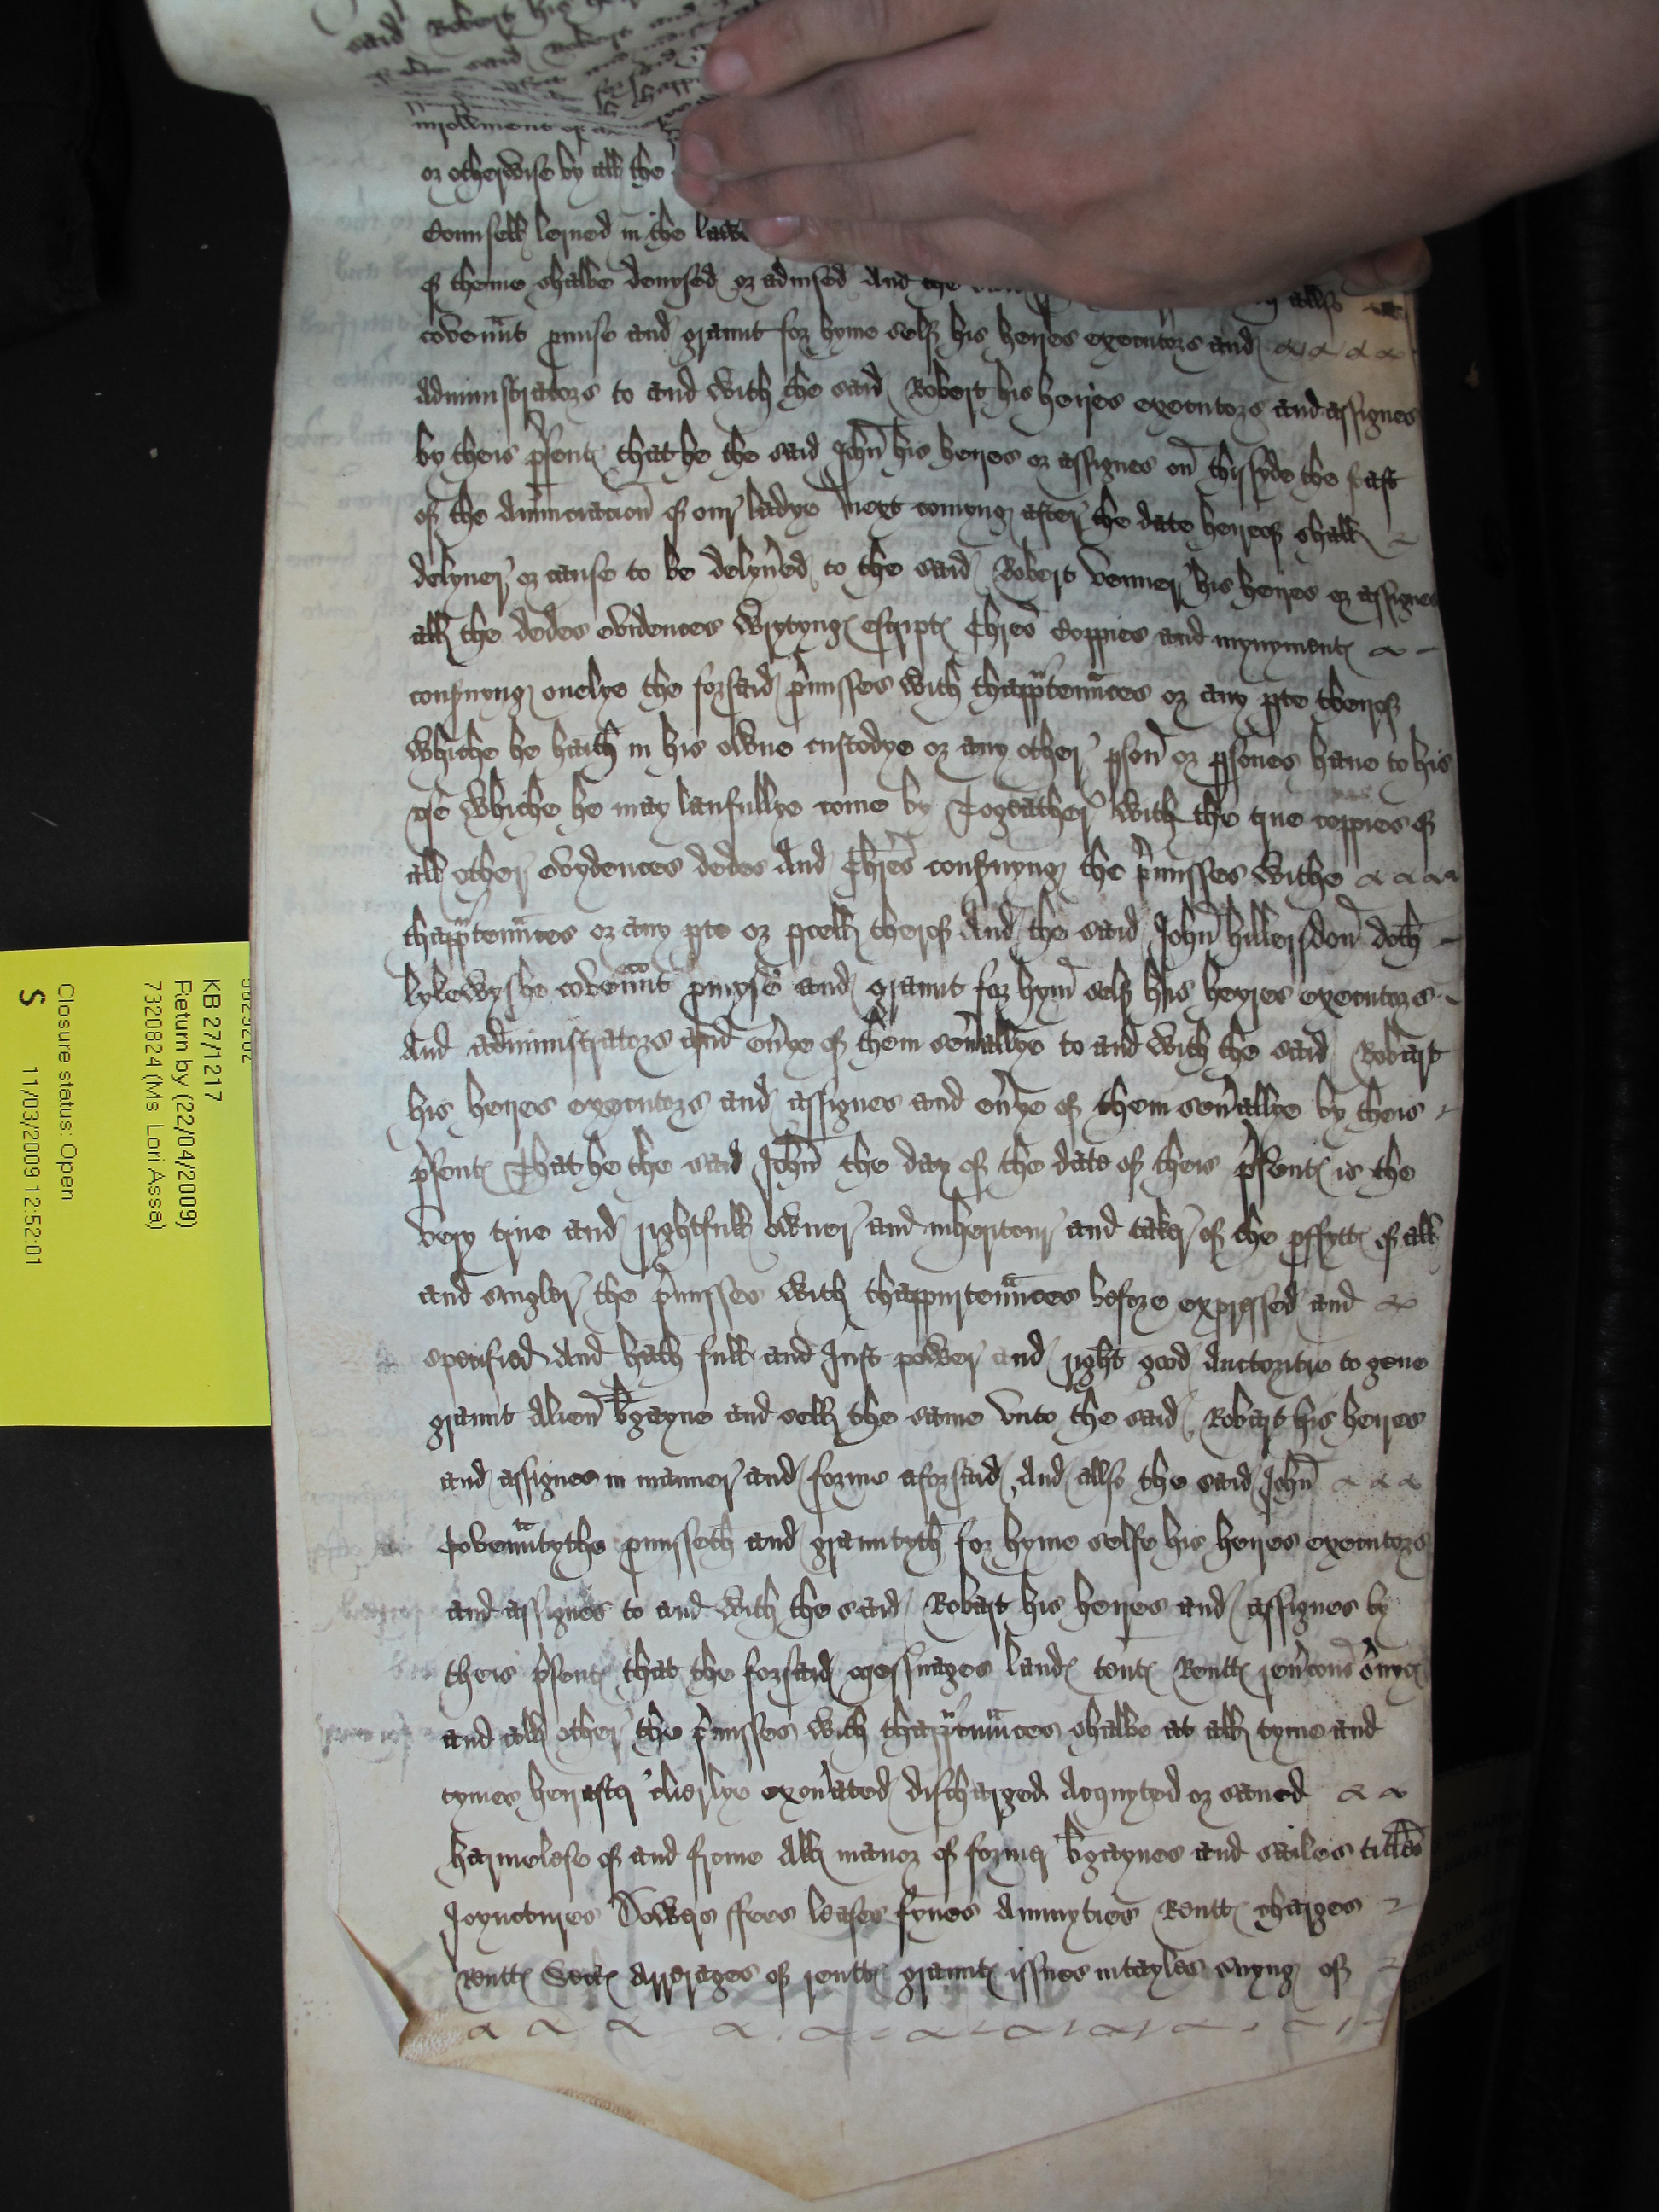 said Robert his
said Robert and
inrollment of
or otherwise by all the
Counsell lerned in the lawe
of theme shalbe devysed or advised And the allso
covennt pmise and graunt for hyme self his heires executors and
Administrators to and with the said Robert his heires executors and assignes
by theis psent that he the said John his heires or assignes on thissyde the feast
of the Anunciacion of our ladye next comyng after the date hereof shall
delyuer or cause to be delyued to the said Robert Venner his heires or assignes
all the dedes evidences wrytyng escript Chres Coppies and mynyment
consnyng onelye the forsaid pmisses with thapptennces or any pte therof
whiche he haith in his owne custodye or any other pson or psones haue to his
vse whiche he may laufullye come by Togeather with the true coppies of
all other evydences dedes And Chres consnyng the pmisses withe
thapptennces or any pte or pcell therof And the said John hillersdon doth
lykewyshe covennt pmyse and graunt for hym self his heyres executors
And administrators and euye of them seuallye to and with the said Robart
his heires executors and assignes and euye of them seuallye by theis
psent That he the said John the day of the date of theis psent is the
very true and rightfull owner and inheritour and taker of the pffytt of all
and singler the pmisses with thappurtennces before expressed and
specified And hath full and Just power and right good Auctoritie to geue
graunt Alien bgayne and sell the same vnto the said Robart his heires
and assignes in manner and forme aforsaid And allso the said John
Covenntythe pmisseth and grauntyth for hyme selfe his heires executors
and assignes to and with the said Robart his heires and assignes by
theis psent that the forsaid messuages land tent Rentt reucons suyc
and all other the pmisses with thapptennces shalbe at all tyme and
tymes herafter clerlye exonated discharged Acquyted or saued
harmelese of and frome All manor of former bgaynes and sailes titles
Joynctures Dowers ffees leases fynes Annuyties Rentt charges
Rentt Secke Arrerages of rentt graunt issues intayles suyng of
KB 27/1217
Return by (22/04/2009)
7320824 (Ms. Lori Assa)
Closure status: Open
S 11/03/2009 12:52:01